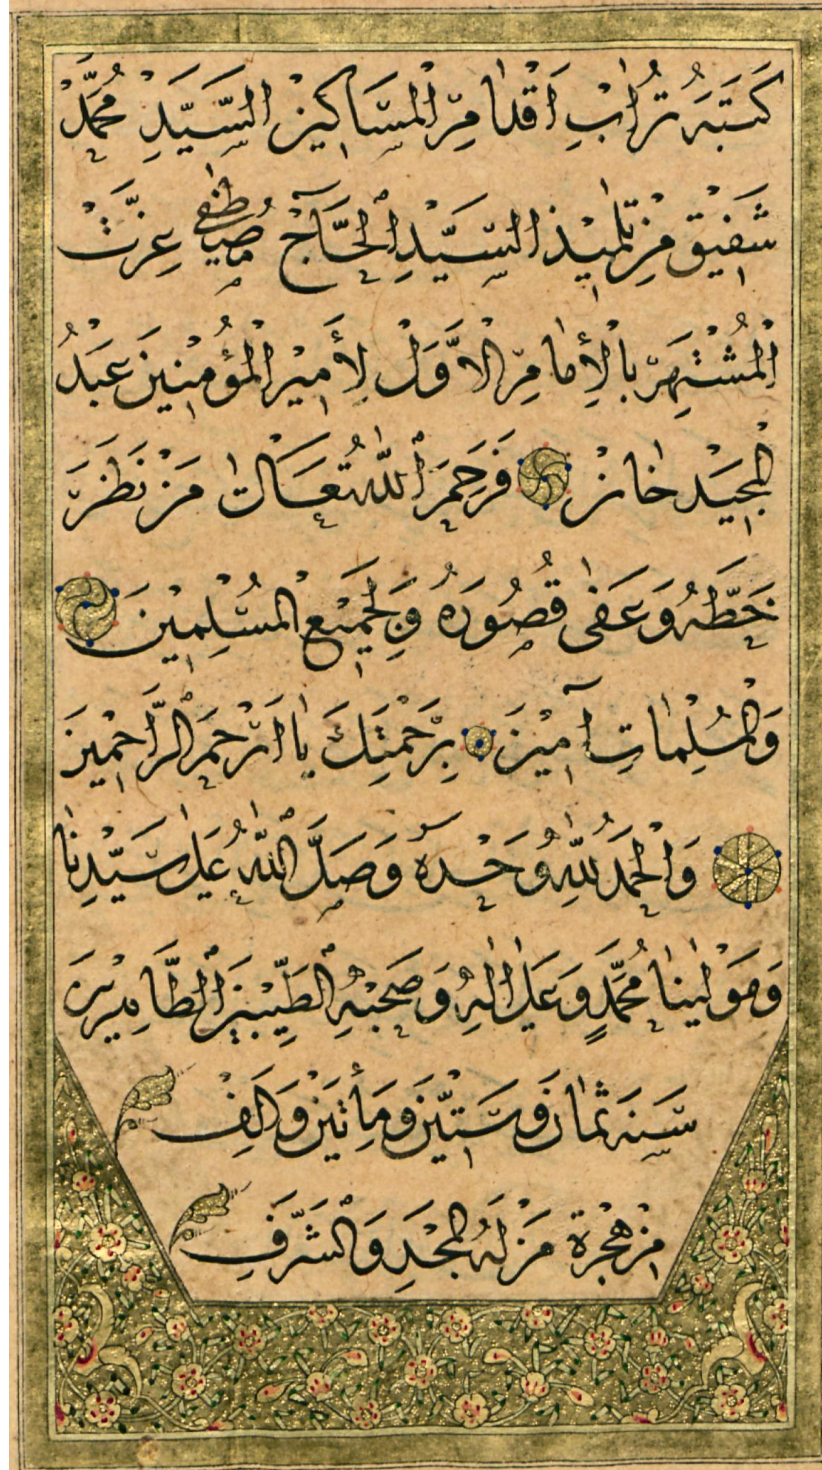 كَتَبَهُ تُرَابِ اَقْدَامِ الْمَسَاكِيْنْ السَّيِّدِ مُحَمَّدْ
شَفِيْقْ مِنْ تَلٰمِيْذِ السَّيِّدِ الْحَاۤجْ مُصْطَفٰى عِزَّتْ
الْمُشْتَهِرْ بِالْأِمَامِ الْاَوَّلْ لِأَمِيْرِ الْمُؤْمِنِيْنَ عَبْدُ
الْمَجِيْدْ خَانْ فَرَحِمَ اللّٰهُ تُعَالٰى مَنْ نَظَرَ
خَطَّهُ وَعَفٰى قُصُوْرَهُ وَلِجَمِيْعِ الْمُسْلِمِيْنَ
وَالْمُسْلِمَاتِ آمِيْنَ بِرَحْمَتِكَ يَا اَرْحَمَ الرَّاحِمِيْنَ
وَالْحَمْدُ لِلّٰهِ وَحْدَهُ وَصَلَّ اللّٰهُ عَلٰى سَيِّدِنَا
وَمَوْلٰينَا مُحَمَّدٍ وَعَلٰى اٰلِهِ وَصَحْبِهِ الطَّيِّبِيْنَ الطَّاهِرِيْنَ
سَنَةَ ثَمَانَ وَسِتِّيْنَ وَمِأَتَيْنَ وَالَفِْ
مِنْ هِجْرَةِ مَنْ لَهُ الْمَجْدِ وَالشَّرَفِ